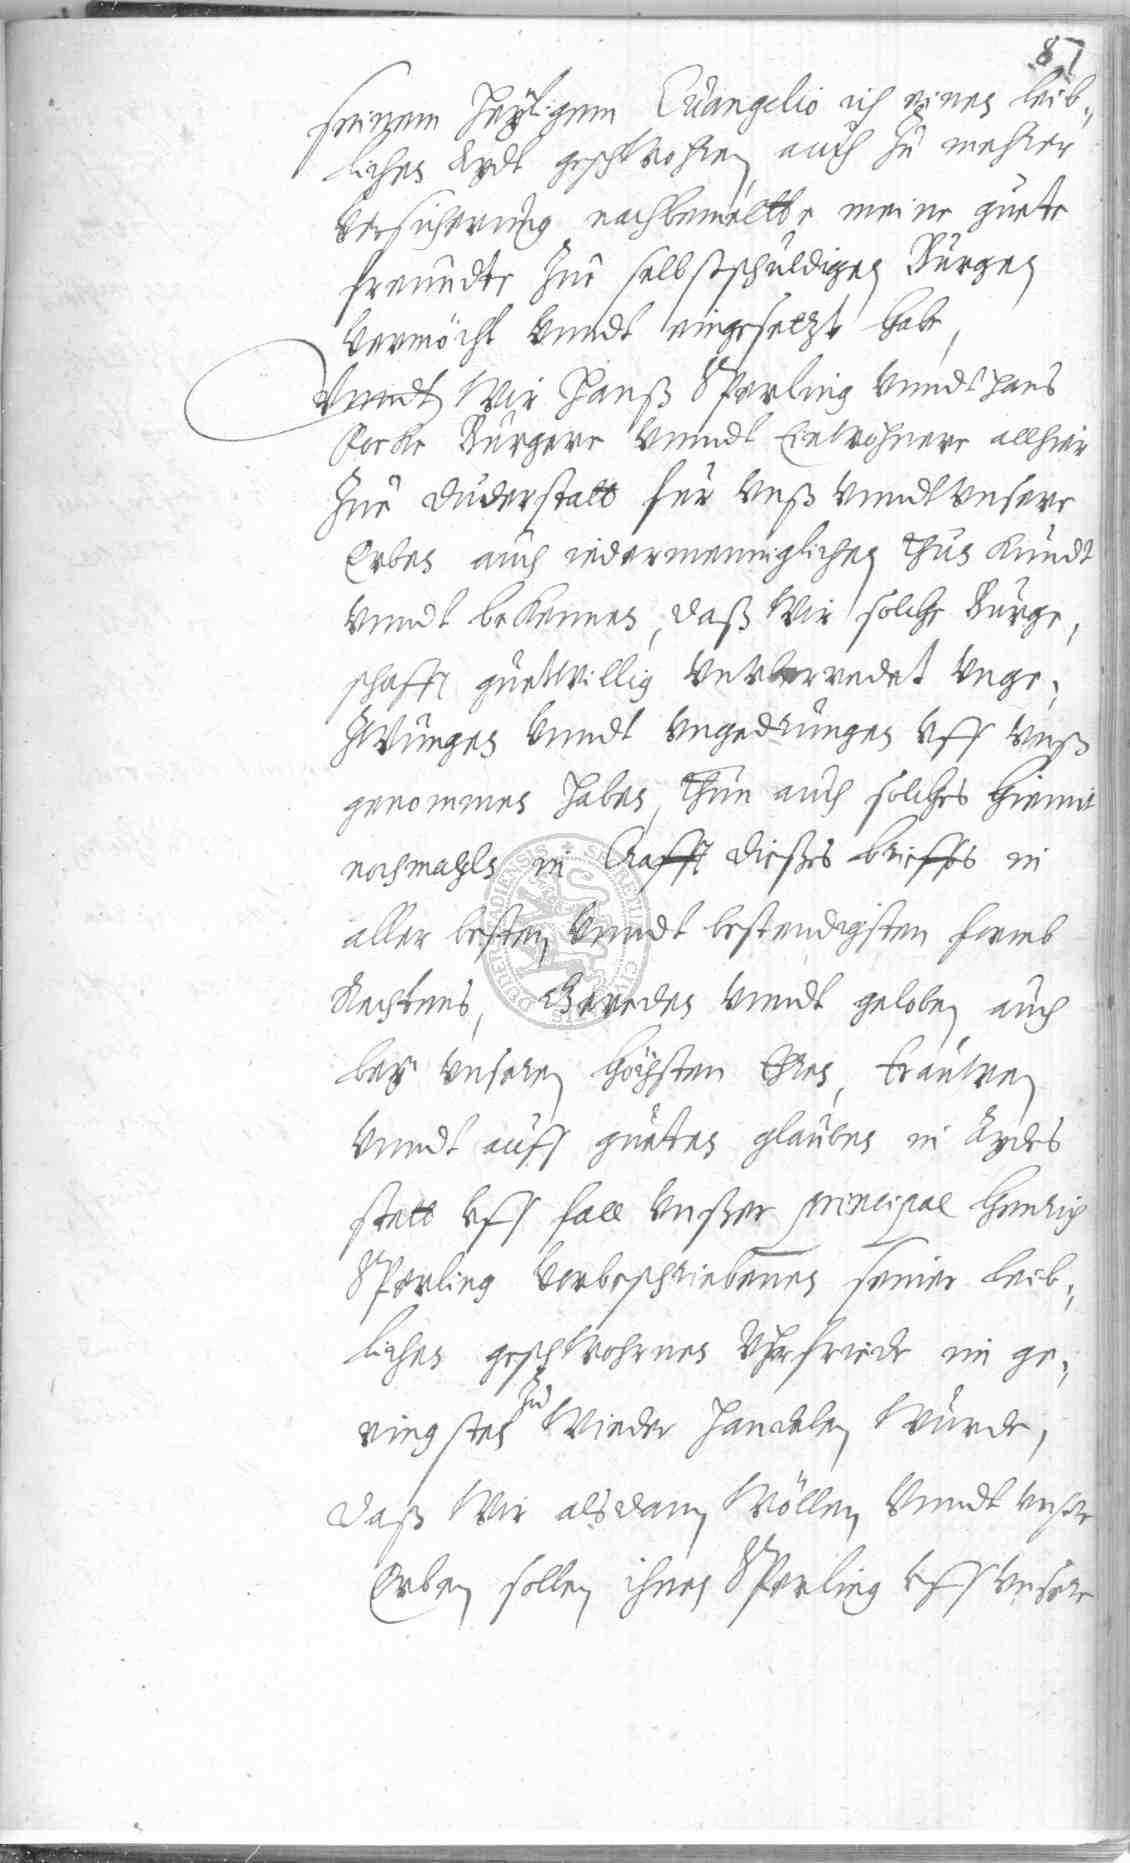 87
seinem Heyligem Euangelio ich einen leib-,
lichen Aydt geschwohren, auch zu mehrer
versicherung nachbemeltte meine guete
freundte zue selbstschuldigen Bürgen
vermöcht vnndt eingesetzt habe,
Vnndt Wir Hanß Sperling vnndt Hans
Bürgere vnndt Einwohnere allhier
Zue Duderstatt für vnß vnndt vnsere
Erben auch iedermenniglichen Thun kundt
vnndt bekennen, daß Wir solche Bürge,
schafft guetwillig vnge,
zwungen vnndt vngedrungen vff vnß
genommen haben, Thun auch solches hiemit
nochmahls in Krafft dießes brieffes in
aller besten, vnndt bestendigsten formb
Rechtens, Gereden vnndt geloben auch
bey vnseren höchsten Ehren, trauwen
vnndt auff gueten glauben in Aydes
statt vff fall vnßer principal Henrich
Sperling vorbeschriebenen seiner leib-,
lichen geschwohrnen Vhrfriede im ge-,
ringsten zu Wieder handelen Würde,
daß Wir alsdann Wöllen vnndt vnsere
Erben sollen ihnen Sperling vff vnsere
SECRETUM CIVITATIS DUDERSTADIENSIS